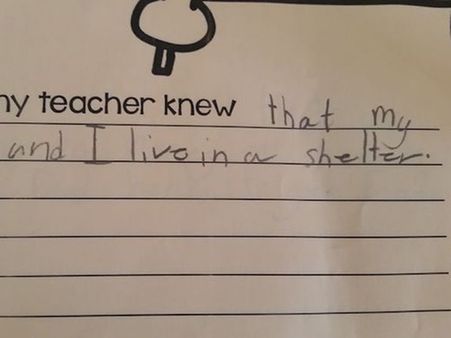 ny teacher knew that my
and I live in a shelter.